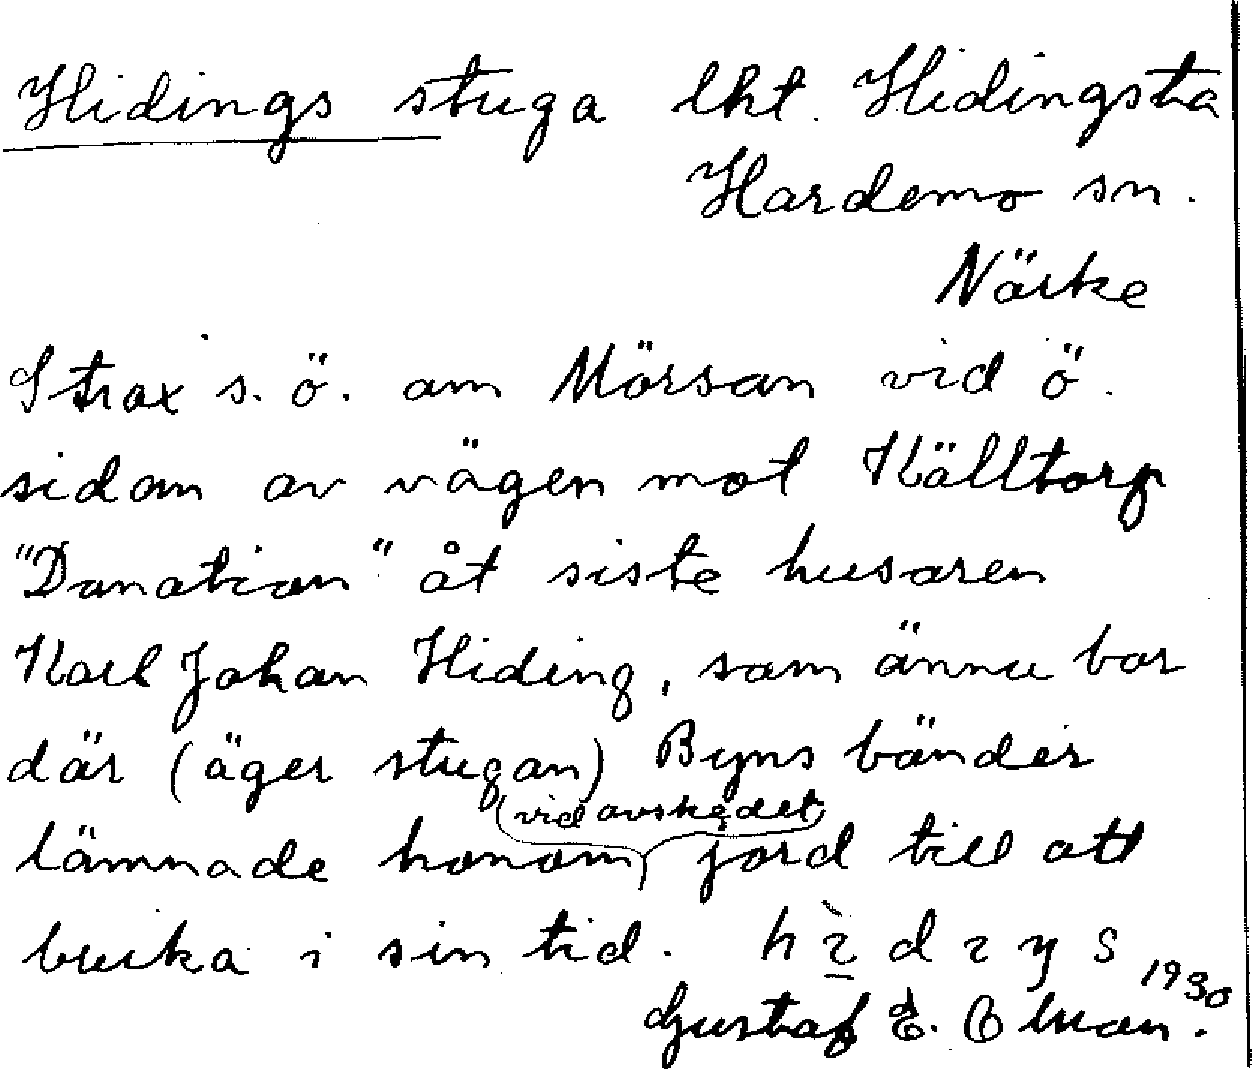 Hidings stuga lht. Hidingsta
Hardemo sn.
Närke
Strax s. ö. om Mörsan vid ö.
sidan av vägen mot Källtorp
"Donation" åt siste husaren
Karl Johan Hiding, som ännu bor
där (äger stugan) Byns bönder
vid avskedet
lämnade honom jord till att
bruka i sin tid.
1930
Gustaf E.